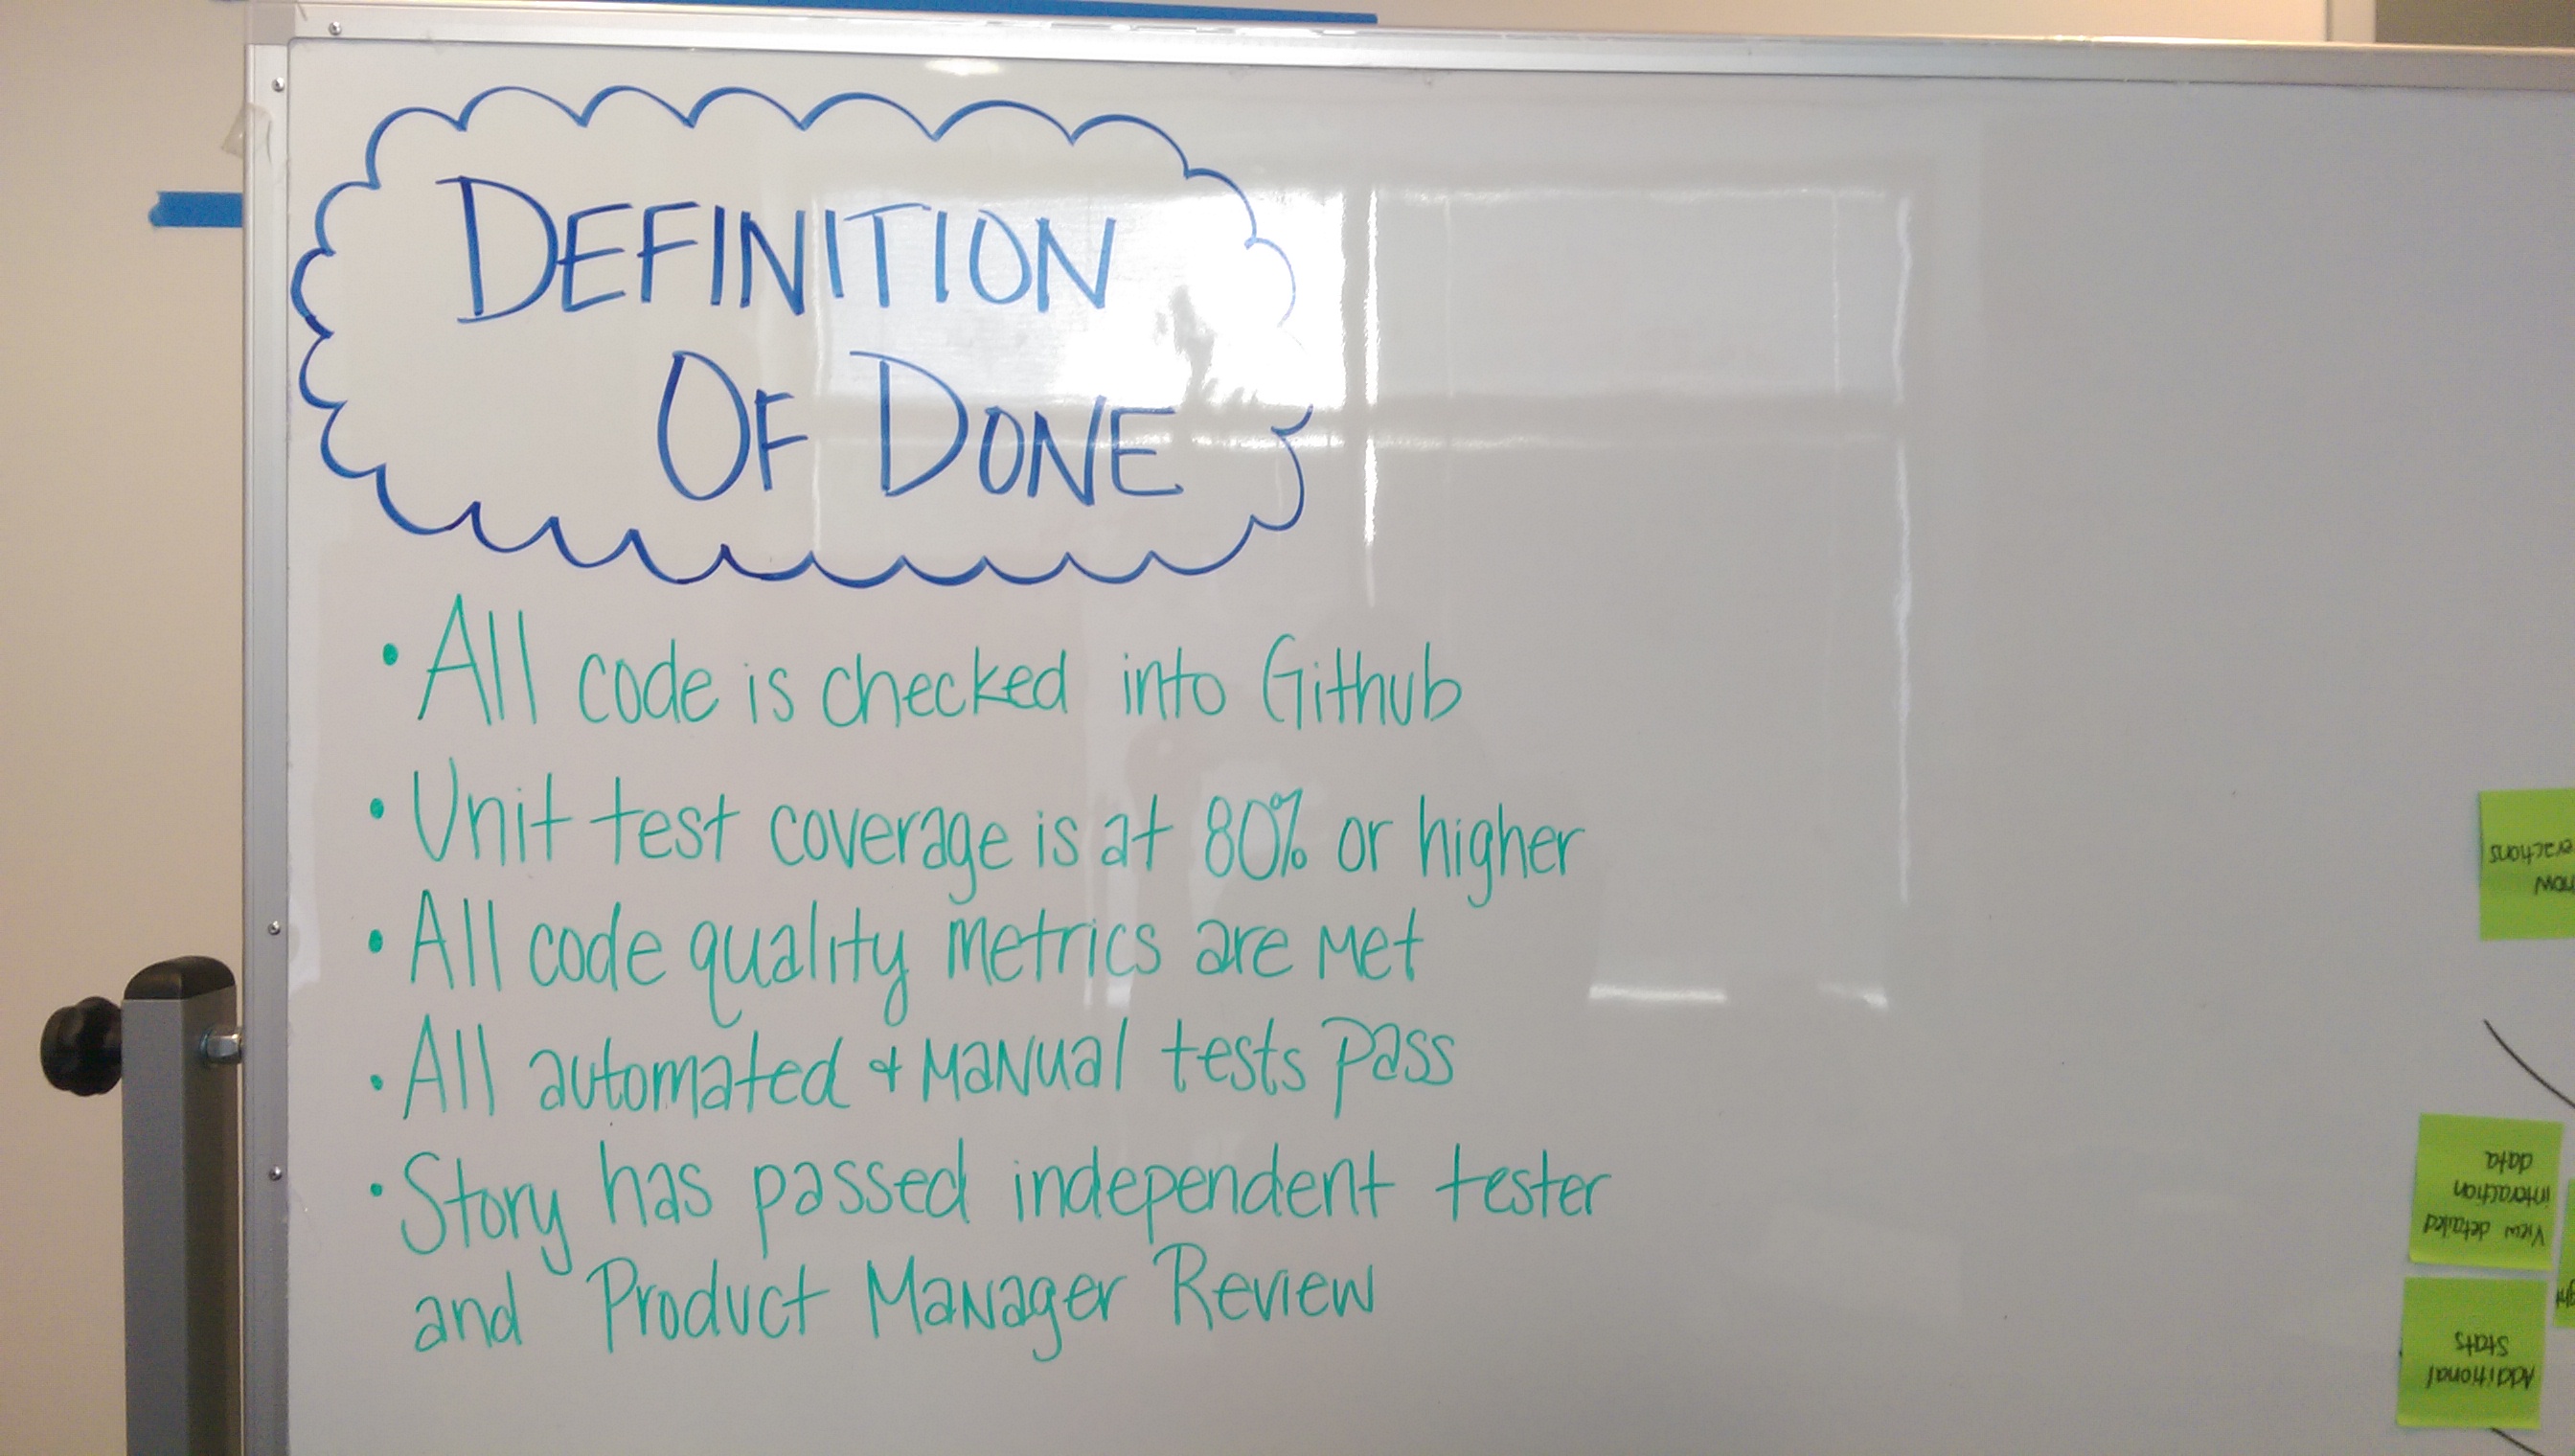 DEFINITION
OF DONE
• All code is checked into Github
• Unit test coverage is at 80% or higher
• All code quality metrics are met
• All automated & manual tests pass
• Story has passed independent tester
and Product Manager Review
View detailed
interaction
data
Additional
Stats